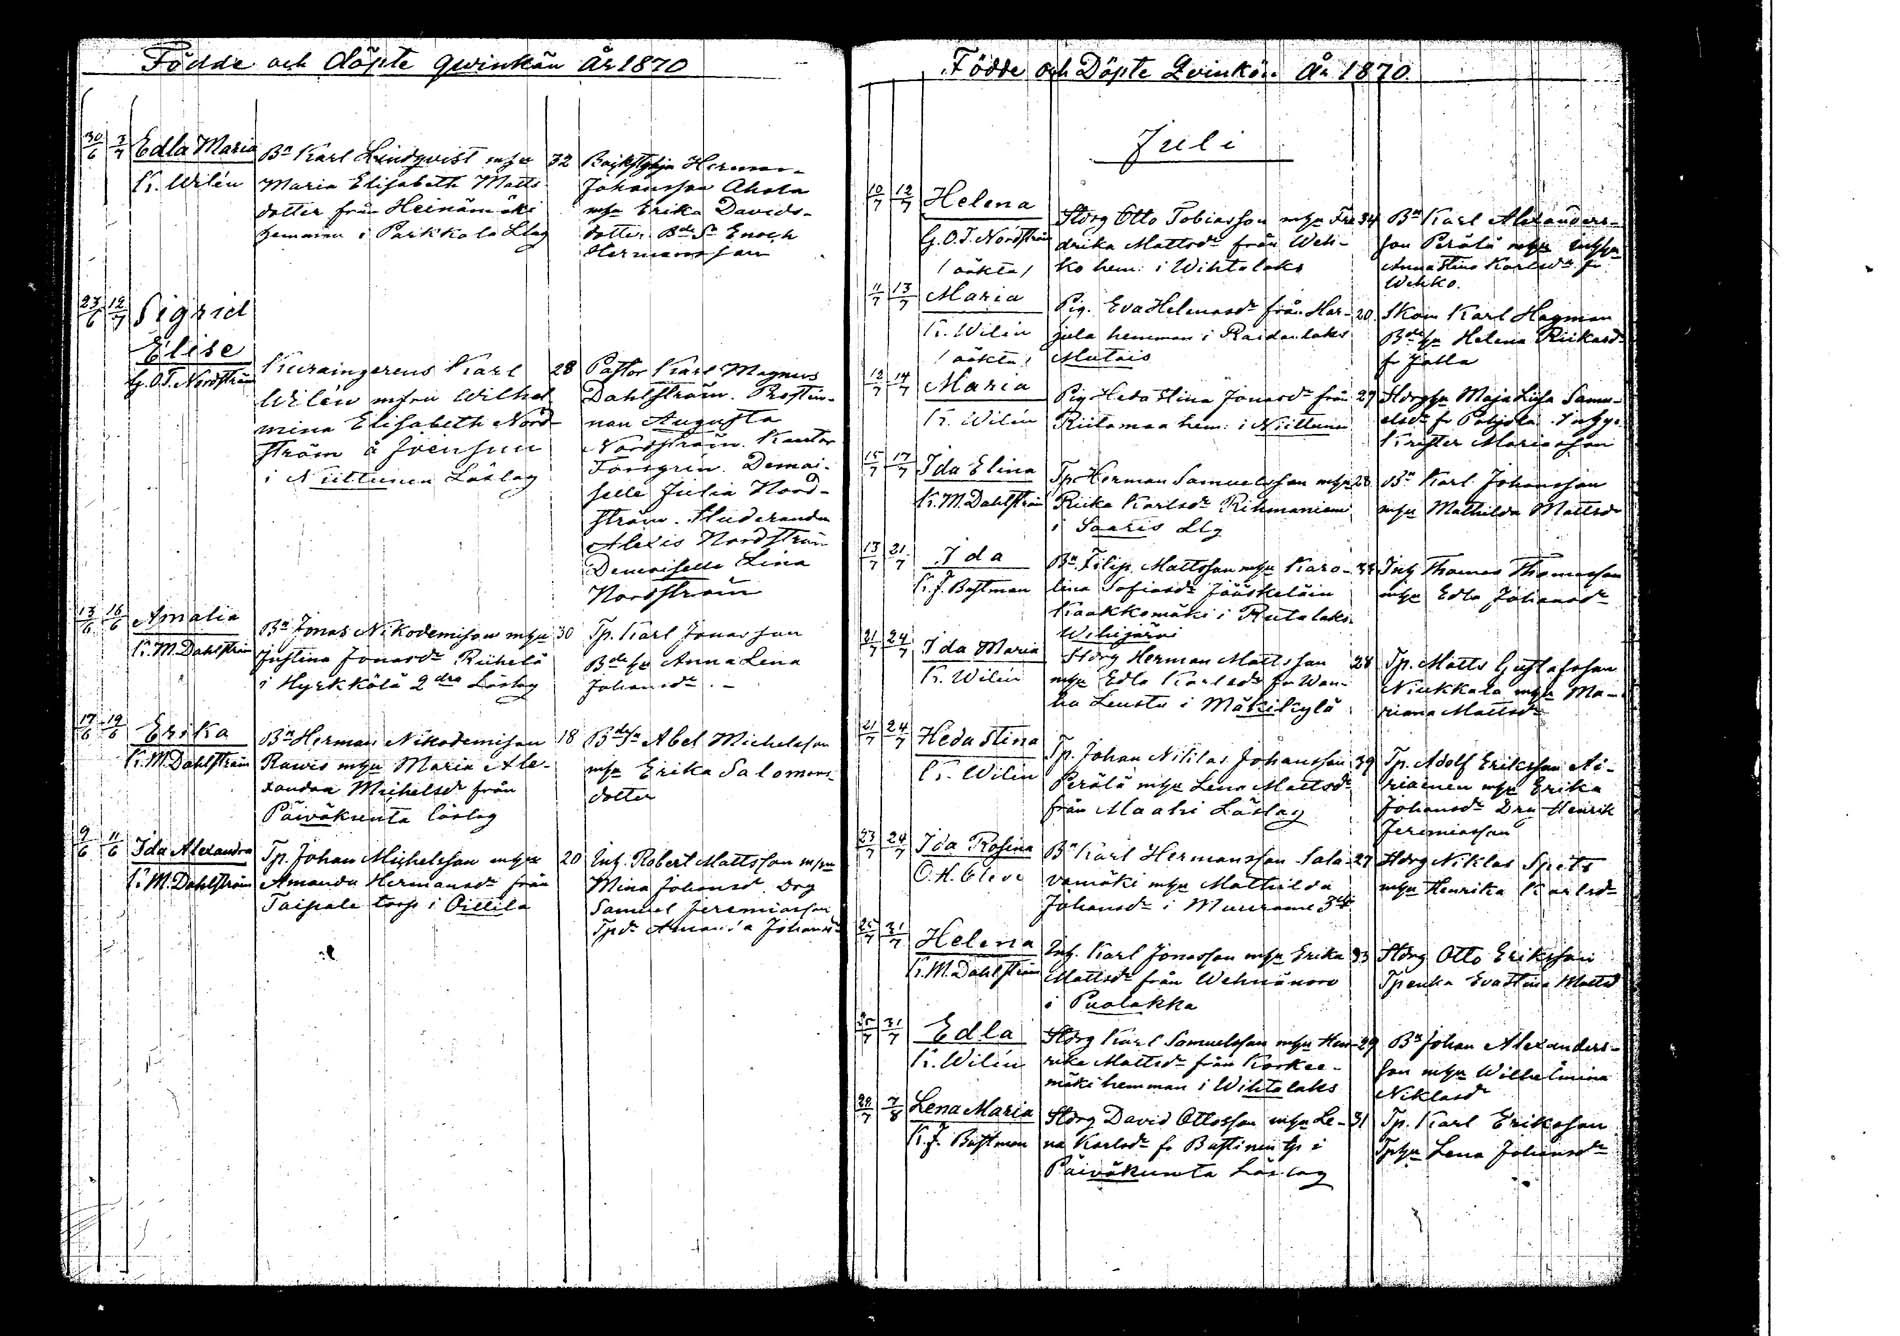 Födde och döpte qwinkön År 1870
30/6 3/7 Edla Maria
K. Wilén
Bn Karl Lindqvist mhu 32
Maria Elisabeth Matts-
dotter från Heinämäki
hemman i Parkkola Llag
Herman
Johansson Ahola
mhu Erika Davids-
dotter. Enoch
Hermansson
23/6 12/7 Sigrid
Elise
G. O. T. Nordström
Karl 28
Wilén mfru Wilhel
mina Elisabeth Nord-
ström å Joensuu
i Niittunen Löslag
Pastor Karl Magnus
Dahlström. Prostin-
nan Augusta
Nordström. Kantor
Forsgrén. Demoi-
selle Julia Nord-
ström. Studeranden
Alexis Nordström
Demoiselle Lina
Nordström
13/6 16/6 Amalia
K. M. Dahlström
Bn Jonas Nikodemison mhu 30
Justina Jonasdr Riihelä
i Hyrkkölä 2dra Löslag
Tp. Karl Jonasson
Bdehu Anna Lena
Johansdr. –
17/6 19/6 Erika
K. M. Dahlström
Bn Herman Nikodemison 18
Rawis mhu Maria Ale-
xandra Michelsdr från
Päiväkunta löslag
Abel Michelsson
mhu Erika Salomons-
dotter
9/6 11/6 Ida Alexandra
K. M. Dahlström
Tp. Johan Michelsson mhu 20
Amanda Hermansdr från
Taipale torp i Oittila
Inh. Robert Mattsson mhu
Mina Johansdr, Drg
Samuel Jeremiasson
Tpdr Amanda Johansdr
Födde och Döpte Qvinkön År 1870.
Juli
10/7 12/7 Helena
G. O. T. Nordström
/oäkta/
Stdrg Otto Tobiasson mhu Fre 34
drika Mattsdr från Weh-
ko hem: i Wihtalaks
Bn Karl Alexanders-
son Perälä
Anna Stina Karlsdr fr
Wehko.
11/7 13/7 Maria
K. Wilén
/oäkta/
Pig. Eva Helenasdr från Har- 20
jula hemman i Raidanlaks
Mutais
Skom Karl Hagman
Bdehu Helena Riikasdr
fr Jalla
12/7 14/7 Maria
K. Wilén
Pig Heda Stina Jonasdr från 27
Riitamaa hem: i Niittunen
Stdrghu Maja Lisa Samu-
elsdr fr Pohjola.
Krister Mariasson
15/7 17/7 Ida Elina
K. M. Dahlström
Tp Herman Samuelsson mhu 28
Riika Karlsdr Rihmaniemi
i Saaris Llg
Bn Karl Johansson
mhu Mathilda Mattsdr
13/7 21/7 Ida
K. J. Bastman
Bn Filip Mattsson mhu Karo- 33
lina Sofiasdr Jääskeläin
Kaakkomäki i Rutalaks
Wihijärvi
Inh Thomas Thomasson
mhu Edla Johansdr
21/7 24/7 Ida Maria
K. Wilén
Stdrg Herman Mattsson 28
mhu Edla Karlsdr fr Wan-
ha Leustu i Mäkikylä
Tp. Matts Gustafsson
Niukkala mhu Ma-
riana Mattsdr
21/7 24/7 Heda Stina
K. Wilén
Tp. Johan Niklas Johansson 39
Perälä mhu Lena Mattsdr
från Maahi Löslag
Tp. Adolf Eriksson Ai-
riainen mhu Erika
Johansdr Drg Henrik
Jeremiasson
23/7 24/7 Ida Rosina
O. H. Cleve
Bn Karl Hermansson Sala- 27
vamäki mhu Mathilda
Johansdr i Muurame 3dje
Stdrg Niklas Spets
mhu Henrika Karlsdr
25/7 31/7 Helena
K. M. Dahlström
Inh. Karl Jonasson mhu Erika 33
Mattsdr från Wehniänoro
i Puolakka
Stdrg Otto Eriksson
Tpenka Eva Stina Mattsd
25/7 31/7 Edla
K. Wilén
Stdrg Karl Samuelsson mhu Hen- 29
rika Mattsdr från Korkee-
mäki hemman i Wihtalaks
Bn Johan Alexanders-
son mhu Wilhelmina
Niklasdr
29/7 7/8 Lena Maria
K. J. Bastman
Stdrg David Ottosson mhu Le- 31
na Karlsdr fr Bastinen tp i
Päiväkunta Löslag
Tp. Karl Eriksson
Tphu Lena Johansdr